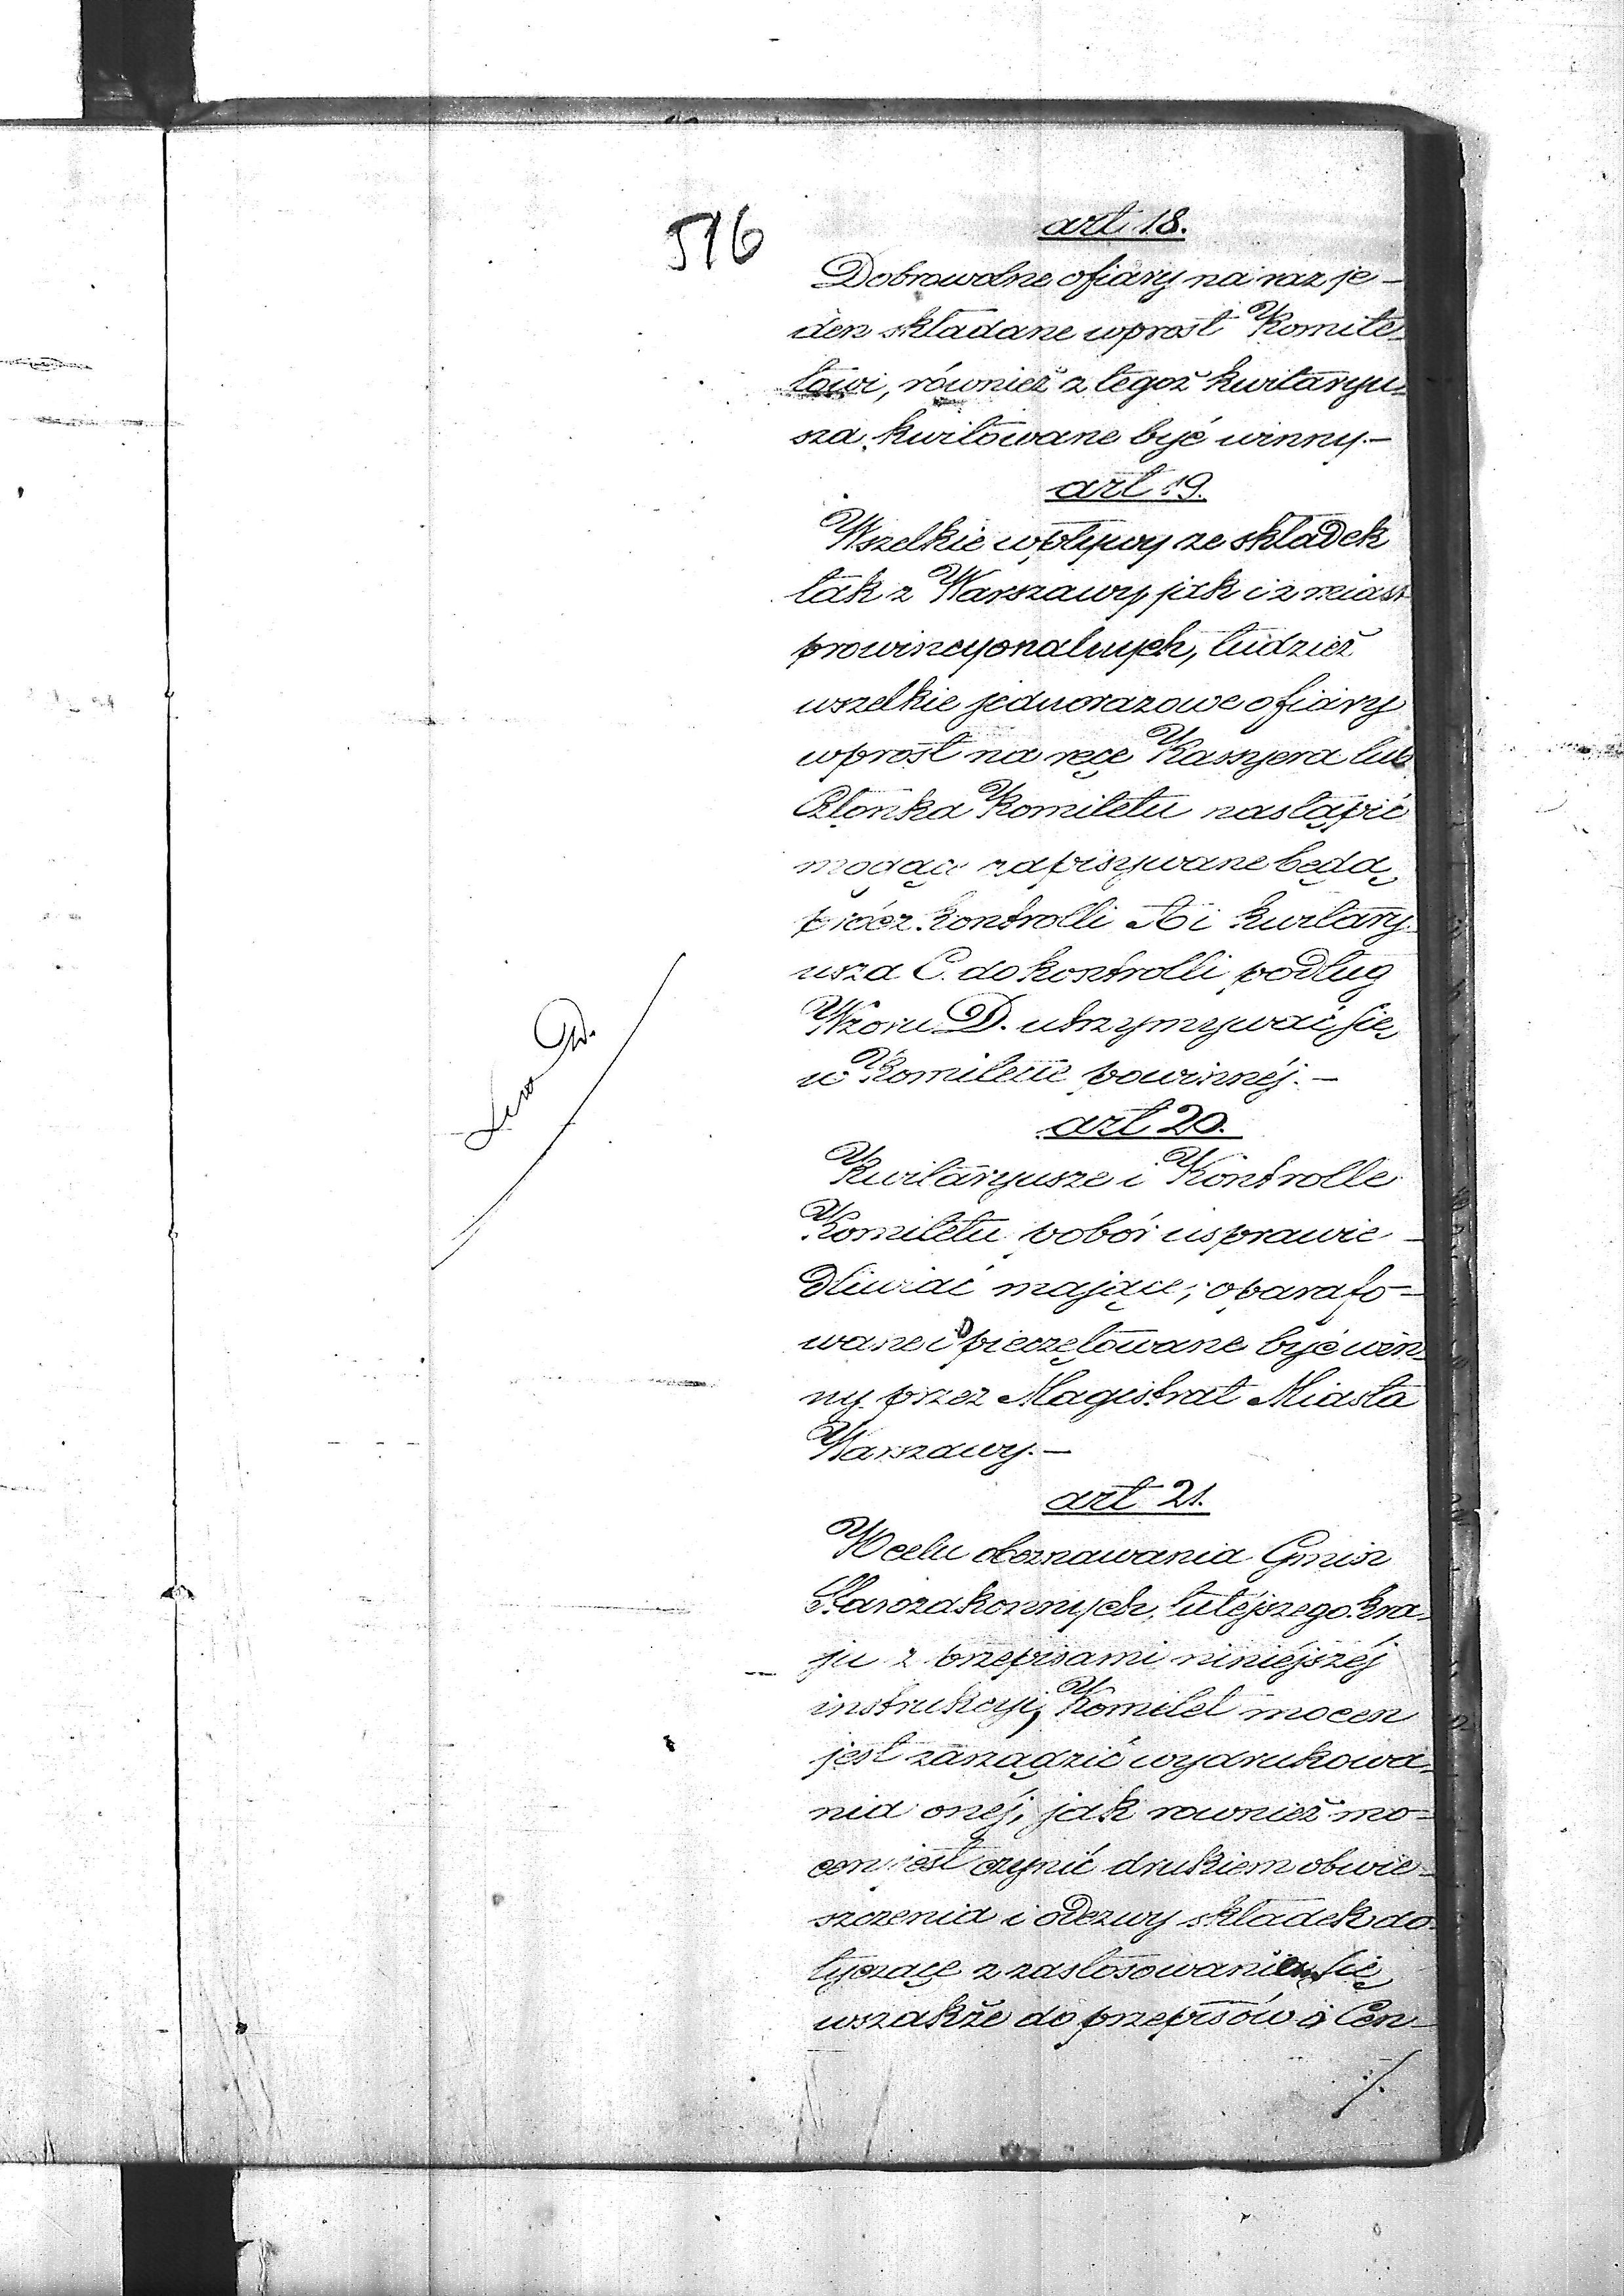 516
art 18.
Dobrowolne ofiary na raz je-
den składane wprost Komite-
towi, również z tegoż kwitaryu-
sza kwitowane być winny.-
art 19.
Wszelkie wpływy ze składek
tak z Warszawy jak i z miast
prowincyonalnych, tudzież
wszelkie jednorazowe ofiary
wprost na ręce Kassyera lub
Członka Komitetu nastąpić
mogące zapisywane będą,
prócz kontrolli A i kwitary-
usza C. do kontrolli podług
Wzoru D. utrzymywać się
w Komitecie powinnéj.-
Lit D.
art 20.
Kwitaryusze i Kontrolle
Komitetu pobór usprawie-
dliwiać mające, oparafo-
wane i opieczętowane być win-
ny przez Magistrat Miasta
Warszawy.-
art 21.
W celu obeznawania Gmin
Starozakonnych tutéjszego kra-
ju z przepisami niniéjszéj
instrukcyi, Komitet mocen
jest zarządzić wydrukowa-
nia onéj, jak rownież mo-
cen jest czynić drukiem obwie-
szczenia i odezwy składek do-
tyczące z zastosowaniem się
wszakże do przepisów o Cen-
./.